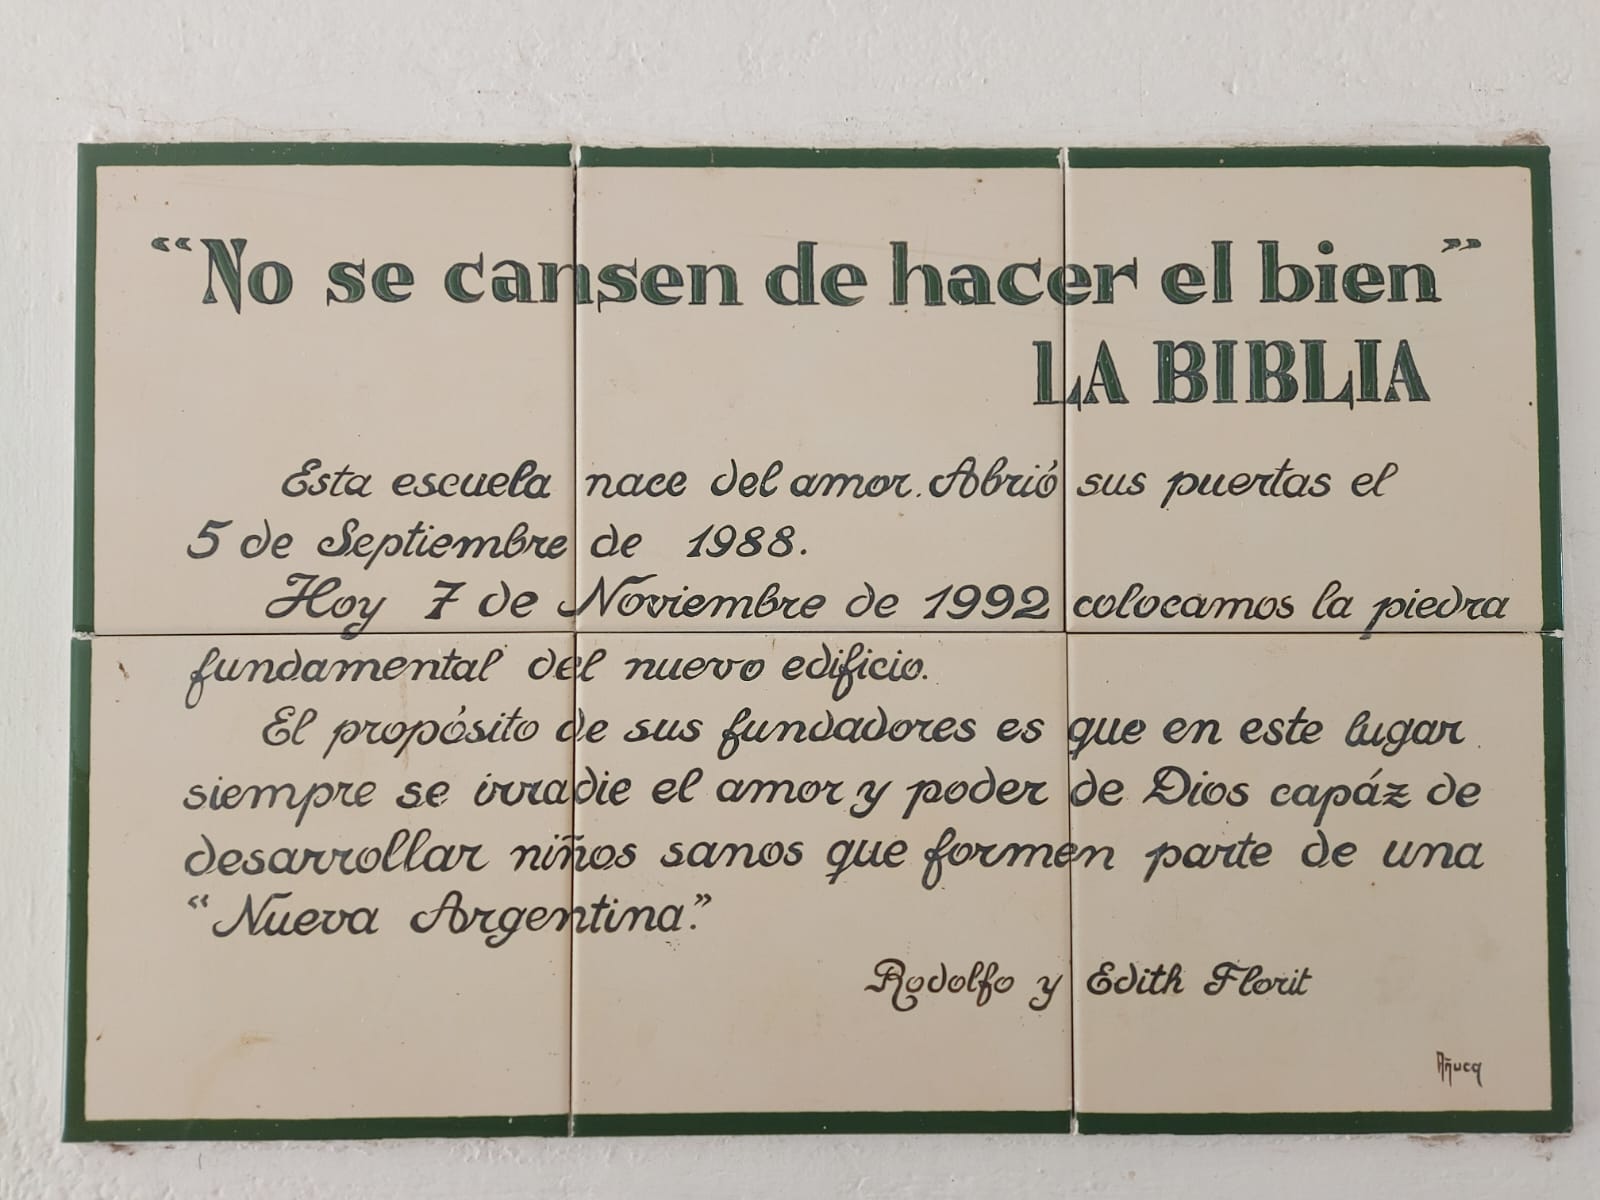 “No se cansen de hacer el bien”
LA BIBLIA
Esta escuela nace del amor. Abrió sus puertas el
5 de Septiembre de 1988.
Hoy 7 de Noviembre de 1992 colocamos la piedra
fundamental del nuevo edificio.
El propósito de sus fundadores es que en este lugar
siempre se irradie el amor y poder de Dios capáz de
desarrollar niños sanos que formen parte de una
“Nueva Argentina.”
Rodolfo y Edith Florit